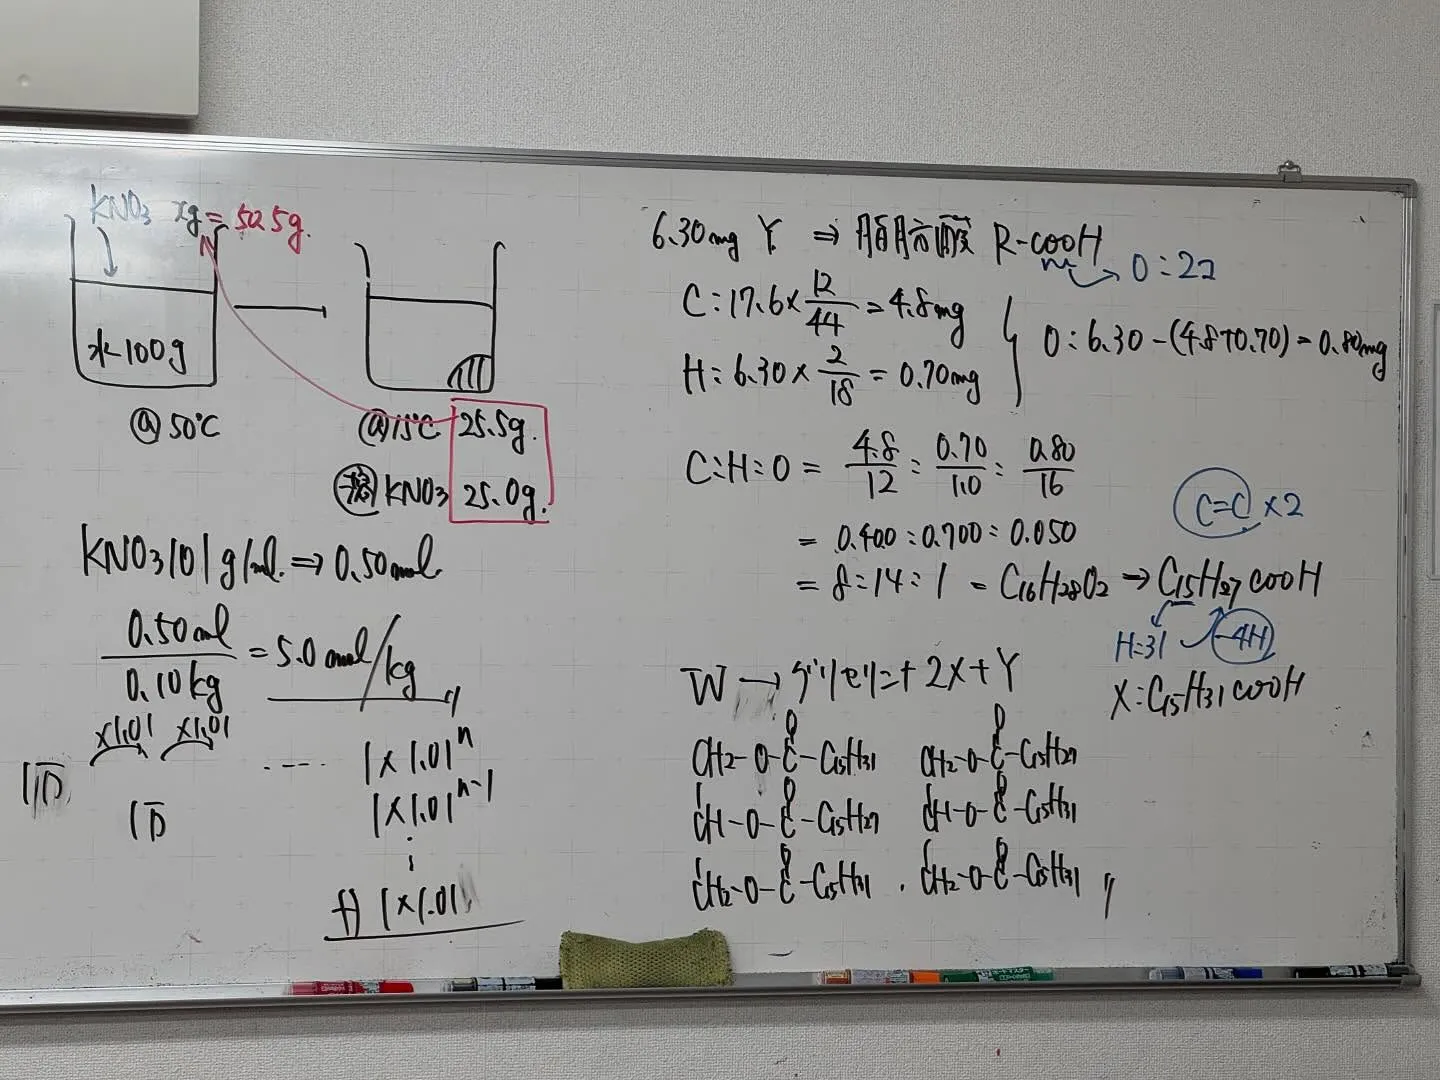 KNO3 xg = 50.5g.
水100g
@50℃
@15℃ 25.5g.
溶 KNO3 25.0g.
KNO3 101g/mol ⇒ 0.50mol
0.50mol / 0.10kg = 5.0mol/kg
×1.01 ×1.01
1万 ‥‥ 1×1.01^n
1万 1×1.01^n-1
⋮
+) 1×1.01
6.30mg Y ⇒ 脂肪酸 R-COOH
→ O:2コ
C:17.6×12/44=4.8mg
H:6.30×2/18=0.70mg
O:6.30-(4.8+0.70)=0.80mg
C:H:O = 4.8/12 : 0.70/1.0 : 0.80/16
= 0.400:0.700:0.050
C=C ×2
= 8:14:1 = C16H28O2 → C15H27COOH
H=31 -4H
X:C15H31COOH
W → グリセリン+2X+Y
CH2-O-C-C15H31 CH2-O-C-C15H27
O O
CH-O-C-C15H27 CH-O-C-C15H31
O O
CH2-O-C-C15H31 . CH2-O-C-C15H31 〃
O O